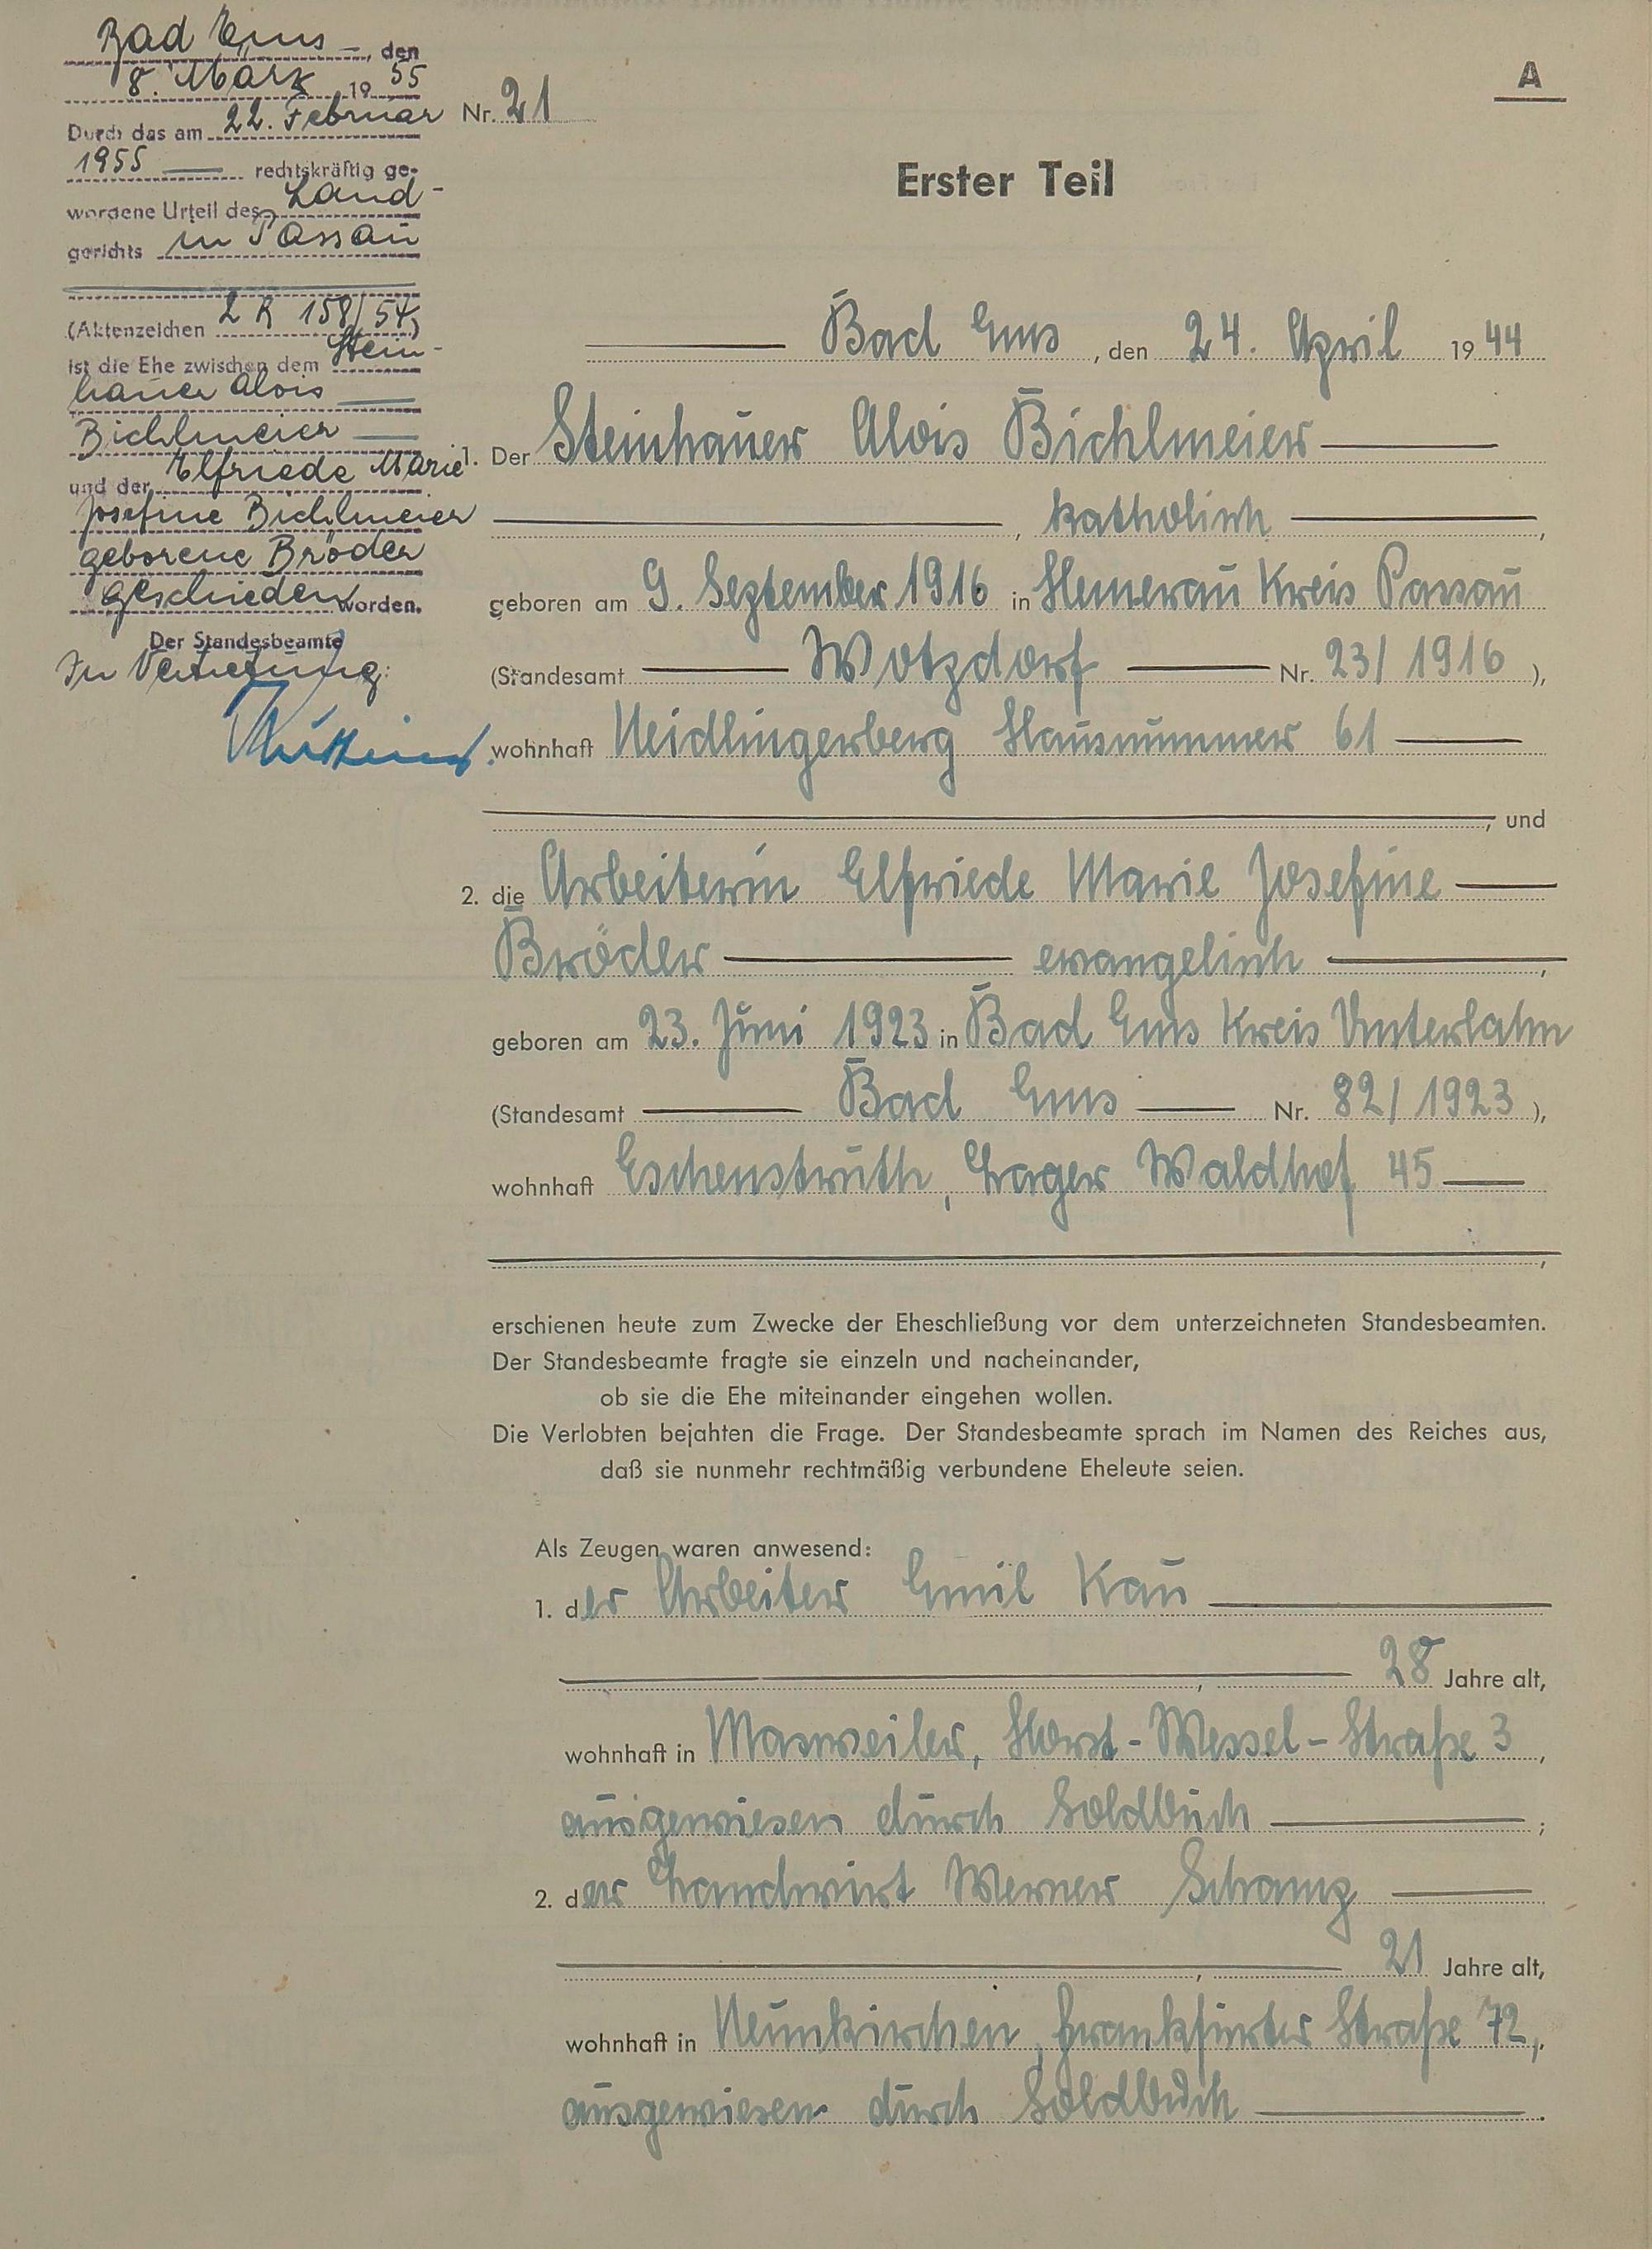 Bad Ems, den
8. März 1955
Durch das am 22. Februar
1955 rechtskräftig ge-
wordene Urteil des Land-
gerichts in Passau
(Aktenzeichen 2 R 158/54)
ist die Ehe zwischen dem Stein-
hauer Alois
Bichlmeier
und der Elfriede Marie
Josefine Bichlmeier
geborene Bröder
geschieden worden.
Der Standesbeamte
In Vertretung:
A
Nr. 21
Erster Teil
Bad Ems, den 24. April 1944
1. Der Steinhauer Alois Bichlmeier
, katholisch,
geboren am 9. September 1916 in Hemerau Kreis Passau
(Standesamt Wotzdorf Nr. 23/1916),
wohnhaft Neidlingerberg Hausnummer 61
, und
2. die Arbeiterin Elfriede Marie Josefine
Bröder evangelisch,
geboren am 23. Juni 1923 in Bad Ems Kreis Unterlahn
(Standesamt Bad Ems Nr. 82/1923),
wohnhaft Eschenstruth, Lager Waldhof 45
,
erschienen heute zum Zwecke der Eheschließung vor dem unterzeichneten Standesbeamten.
Der Standesbeamte fragte sie einzeln und nacheinander,
ob sie die Ehe miteinander eingehen wollen.
Die Verlobten bejahten die Frage. Der Standesbeamte sprach im Namen des Reiches aus,
daß sie nunmehr rechtmäßig verbundene Eheleute seien.
Als Zeugen waren anwesend:
1. der Arbeiter Emil Kau
, 28 Jahre alt,
wohnhaft in Masweiler, Horst-Wessel-Straße 3,
ausgewiesen durch Soldbuch;
2. der Landwirt Werner Schanz
, 21 Jahre alt,
wohnhaft in Neunkirchen, Frankfurter Straße 72,
ausgewiesen durch Soldbuch.